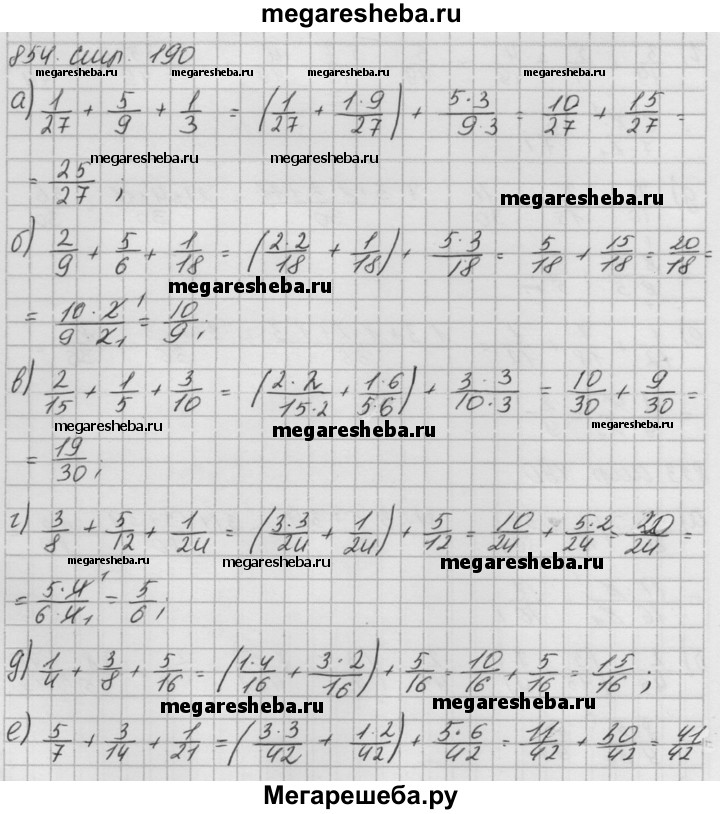 megaresheba.ru
854. стр. 190
megaresheba.ru megaresheba.ru megaresheba.ru
а) 1/27 + 5/9 + 1/3 = (1/27 + 1·9/27) + 5·3/9·3 = 10/27 + 15/27 =
megaresheba.ru megaresheba.ru
= 25/27 ;
megaresheba.ru
б) 2/9 + 5/6 + 1/18 = (2·2/18 + 1/18) + 5·3/18 = 5/18 + 15/18 = 20/18 =
megaresheba.ru
= 10·2/9·2 = 10/9 ;
в) 2/15 + 1/5 + 3/10 = (2·2/15·2 + 1·6/5·6) + 3·3/10·3 = 10/30 + 9/30 =
megaresheba.ru megaresheba.ru
= 19/30 ;
г) 3/8 + 5/12 + 1/24 = (3·3/24 + 1/24) + 5/12 = 10/24 + 5·2/24 = 20/24 =
megaresheba.ru megaresheba.ru megaresheba.ru
= 5·4/6·4 = 5/6 ;
д) 1/4 + 3/8 + 5/16 = (1·4/16 + 3·2/16) + 5/16 = 10/16 + 5/16 = 15/16 ;
megaresheba.ru megaresheba.ru
е) 5/7 + 3/14 + 1/21 = (3·3/42 + 1·2/42) + 5·6/42 = 11/42 + 30/42 = 41/42
Мегарешеба.ру